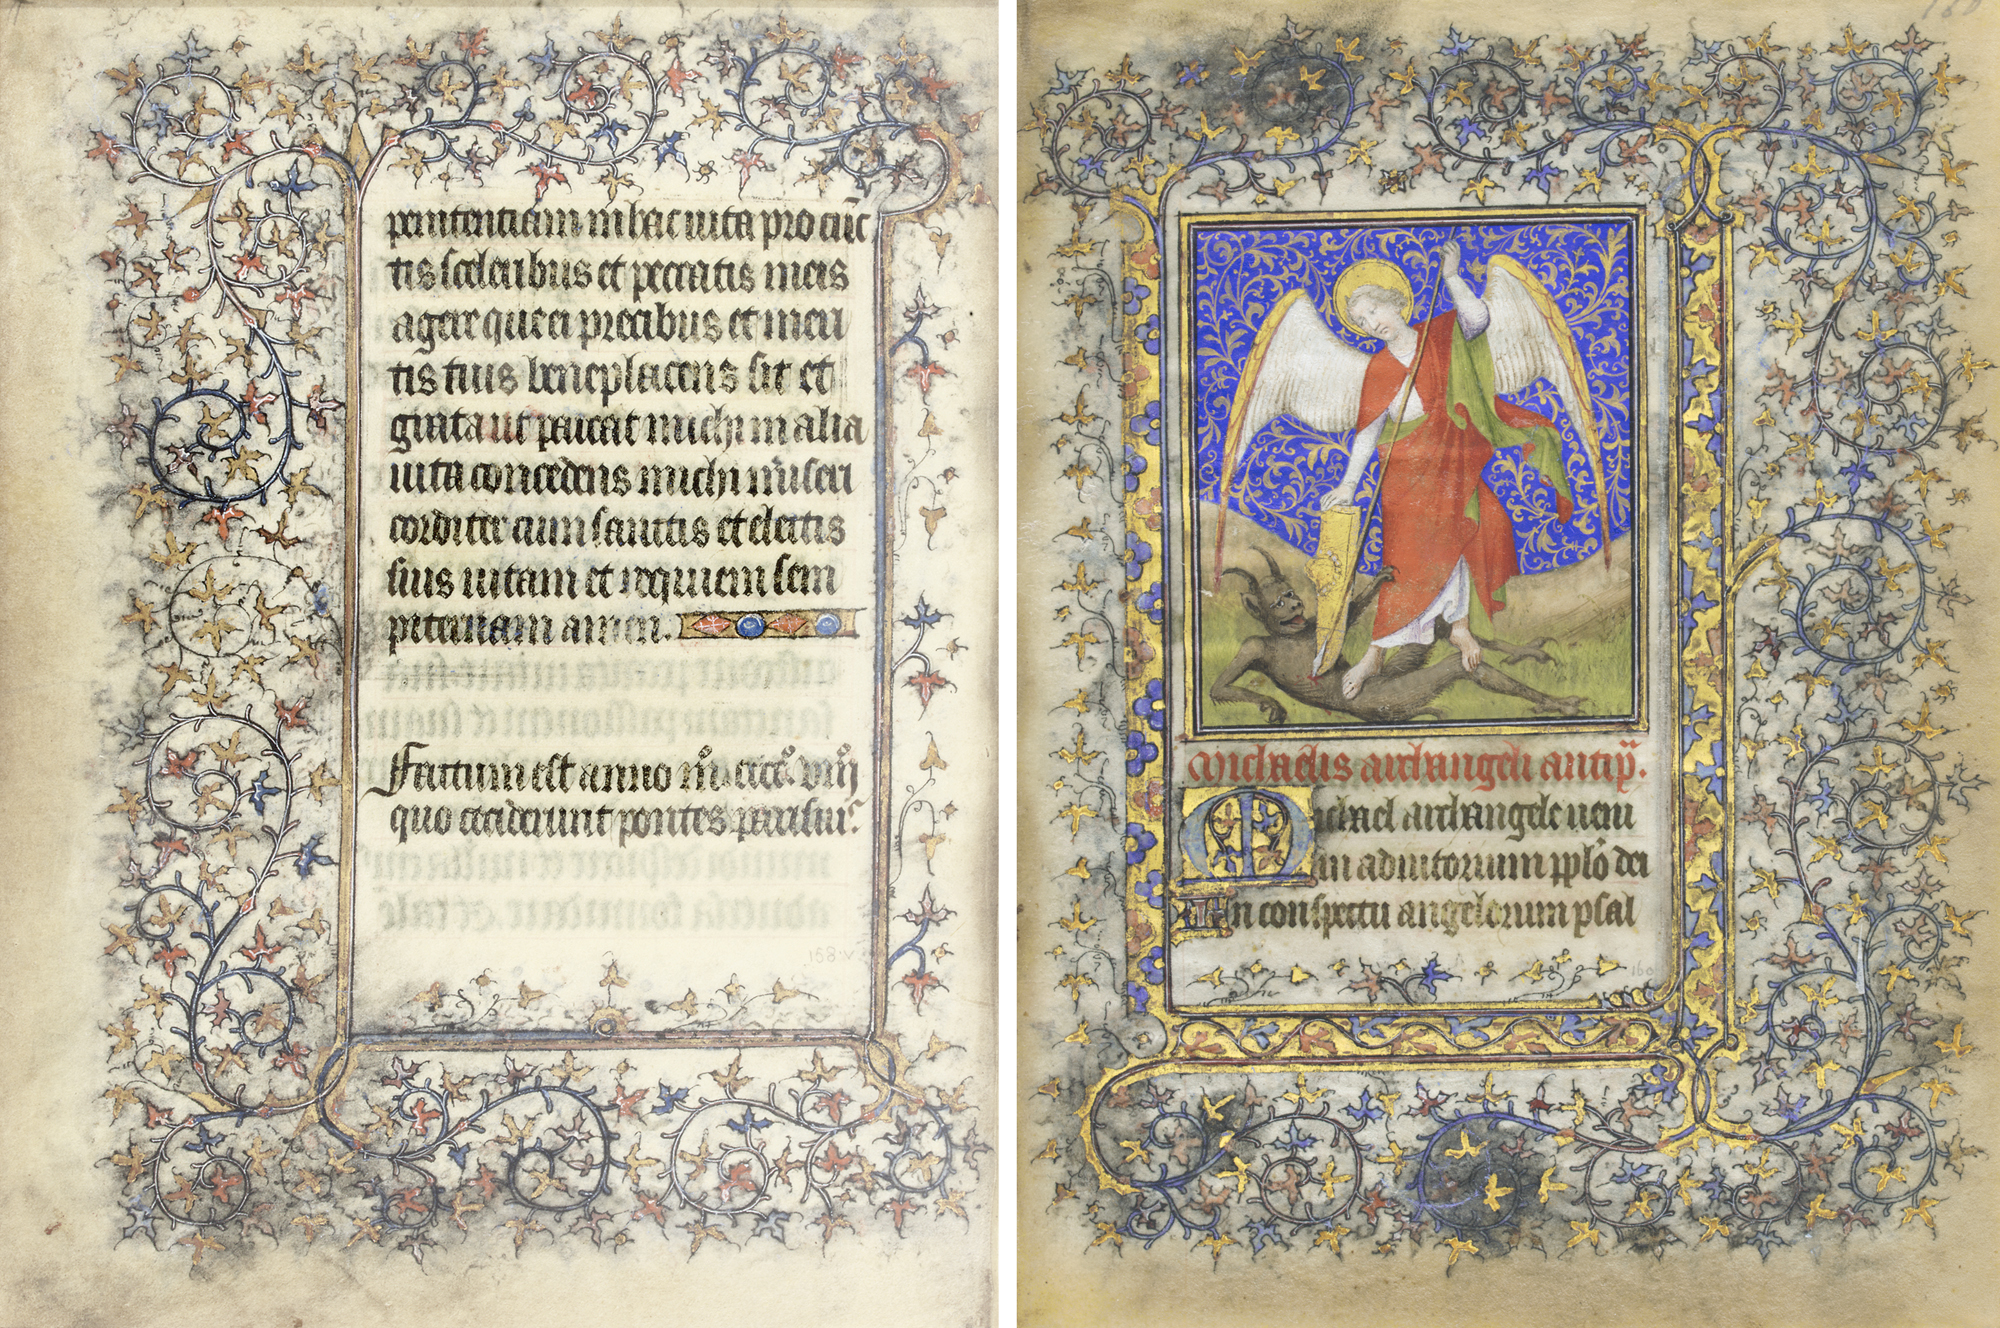 penitentiam in hac uita pro cūc
tis sceleribus et peccatis meis
agere que ei precibus et meri
tis tuis beneplacens sit et
grata ut peniat michi in alia
uita concedens michi m̄iseri
corditer cum sanctis et electis
suis uitam et requiem sem
piternam amen.
Factum est anno m̊. cccc̊. viij̊
quo ceciderunt pontes parisius.
168.v.
Michaelis archangeli antip̄.
Michael archangele ueni
in adiutorium pplo dei
In conspectu angelorum psal
160